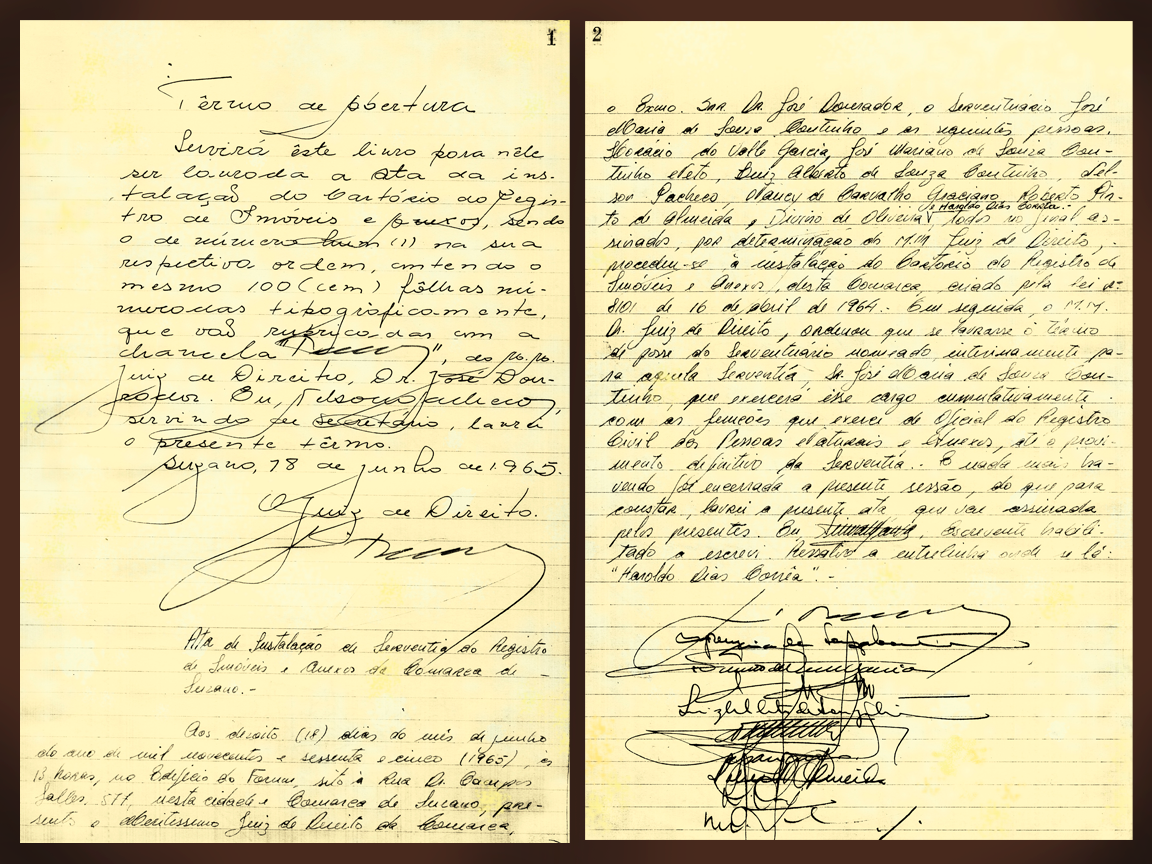 1
Têrmo de Abertura
Servirá êste livro para nêle
ser lavrada a Ata da ins-
talação do Cartório do Regis-
tro de Imóveis e Anexos, sendo
o de número hum (1) na sua
respectiva ordem, contendo o
mesmo 100 (cem) fôlhas nu-
meradas tipográficamente,
que vaõ rubricadas com a
chancela " ", do
Juiz de Direito, Dr. José Dou-
rador. Eu, Nelson Pacheco,
servindo de secretário, lavrei
o presente têrmo.
Suzano, 18 de Junho de 1.965.
O Juiz de Direito.
Ata de Instalação da Serventia do Registro
de Imóveis e Anexos da Comarca de
Suzano.-
Aos dezoito (18) dias do mês de junho
do ano de mil novecentos e sessenta e cinco (1965), às
13 horas, no Edifício do Forum, sito à Rua Dr. Campos
Salles, 577, nesta cidade e Comarca de Suzano, pre-
sente o Meritissimo Juiz de Direito da Comarca,
2
o Exmo. Snr. Dr. José Dourador, o Serventuário José
Maria de Souza Coutinho e as seguintes pessoas.
Horacio do Valle Garcia, José Mariano de Souza Cou-
tinho Neto, Luiz Alberto de Souza Coutinho, Nel-
son Pacheco, Nancy de Carvalho Graciano, Roberto Pin-
to de Almeida e Divino de Oliveira, Haroldo Dias Corrêa. Todos no final as-
sinados, por determinação do M.M. Juiz de Direito,
procedeu-se à instalação do Cartório do Registro de
Imóveis e Anexos, desta Comarca, criado pela Lei nº
8101 de 16 de abril de 1964.- Em seguida, o M.M.
Dr. Juiz de Direito, ordenou que se lavrasse o têrmo
de posse do Serventuário nomeado interinamente pa-
ra aquela Serventia, Sr. José Maria de Souza Cou-
tinho, que exercerá êsse cargo cumulativamente
com as funções que exerce de Oficial do Registro
Civil das Pessoas Naturais e Anexos, até o provi-
mento definitivo da Serventia.- E nada mais ha-
vendo foi encerrada a presente sessão, do que para
constar, lavrei a presente ata, que vai assinada
pelos presentes. Eu Escrevente habili-
tado a escrevi. Ressalvo a entrelinha onde se lê:
"Haroldo Dias Corrêa".-